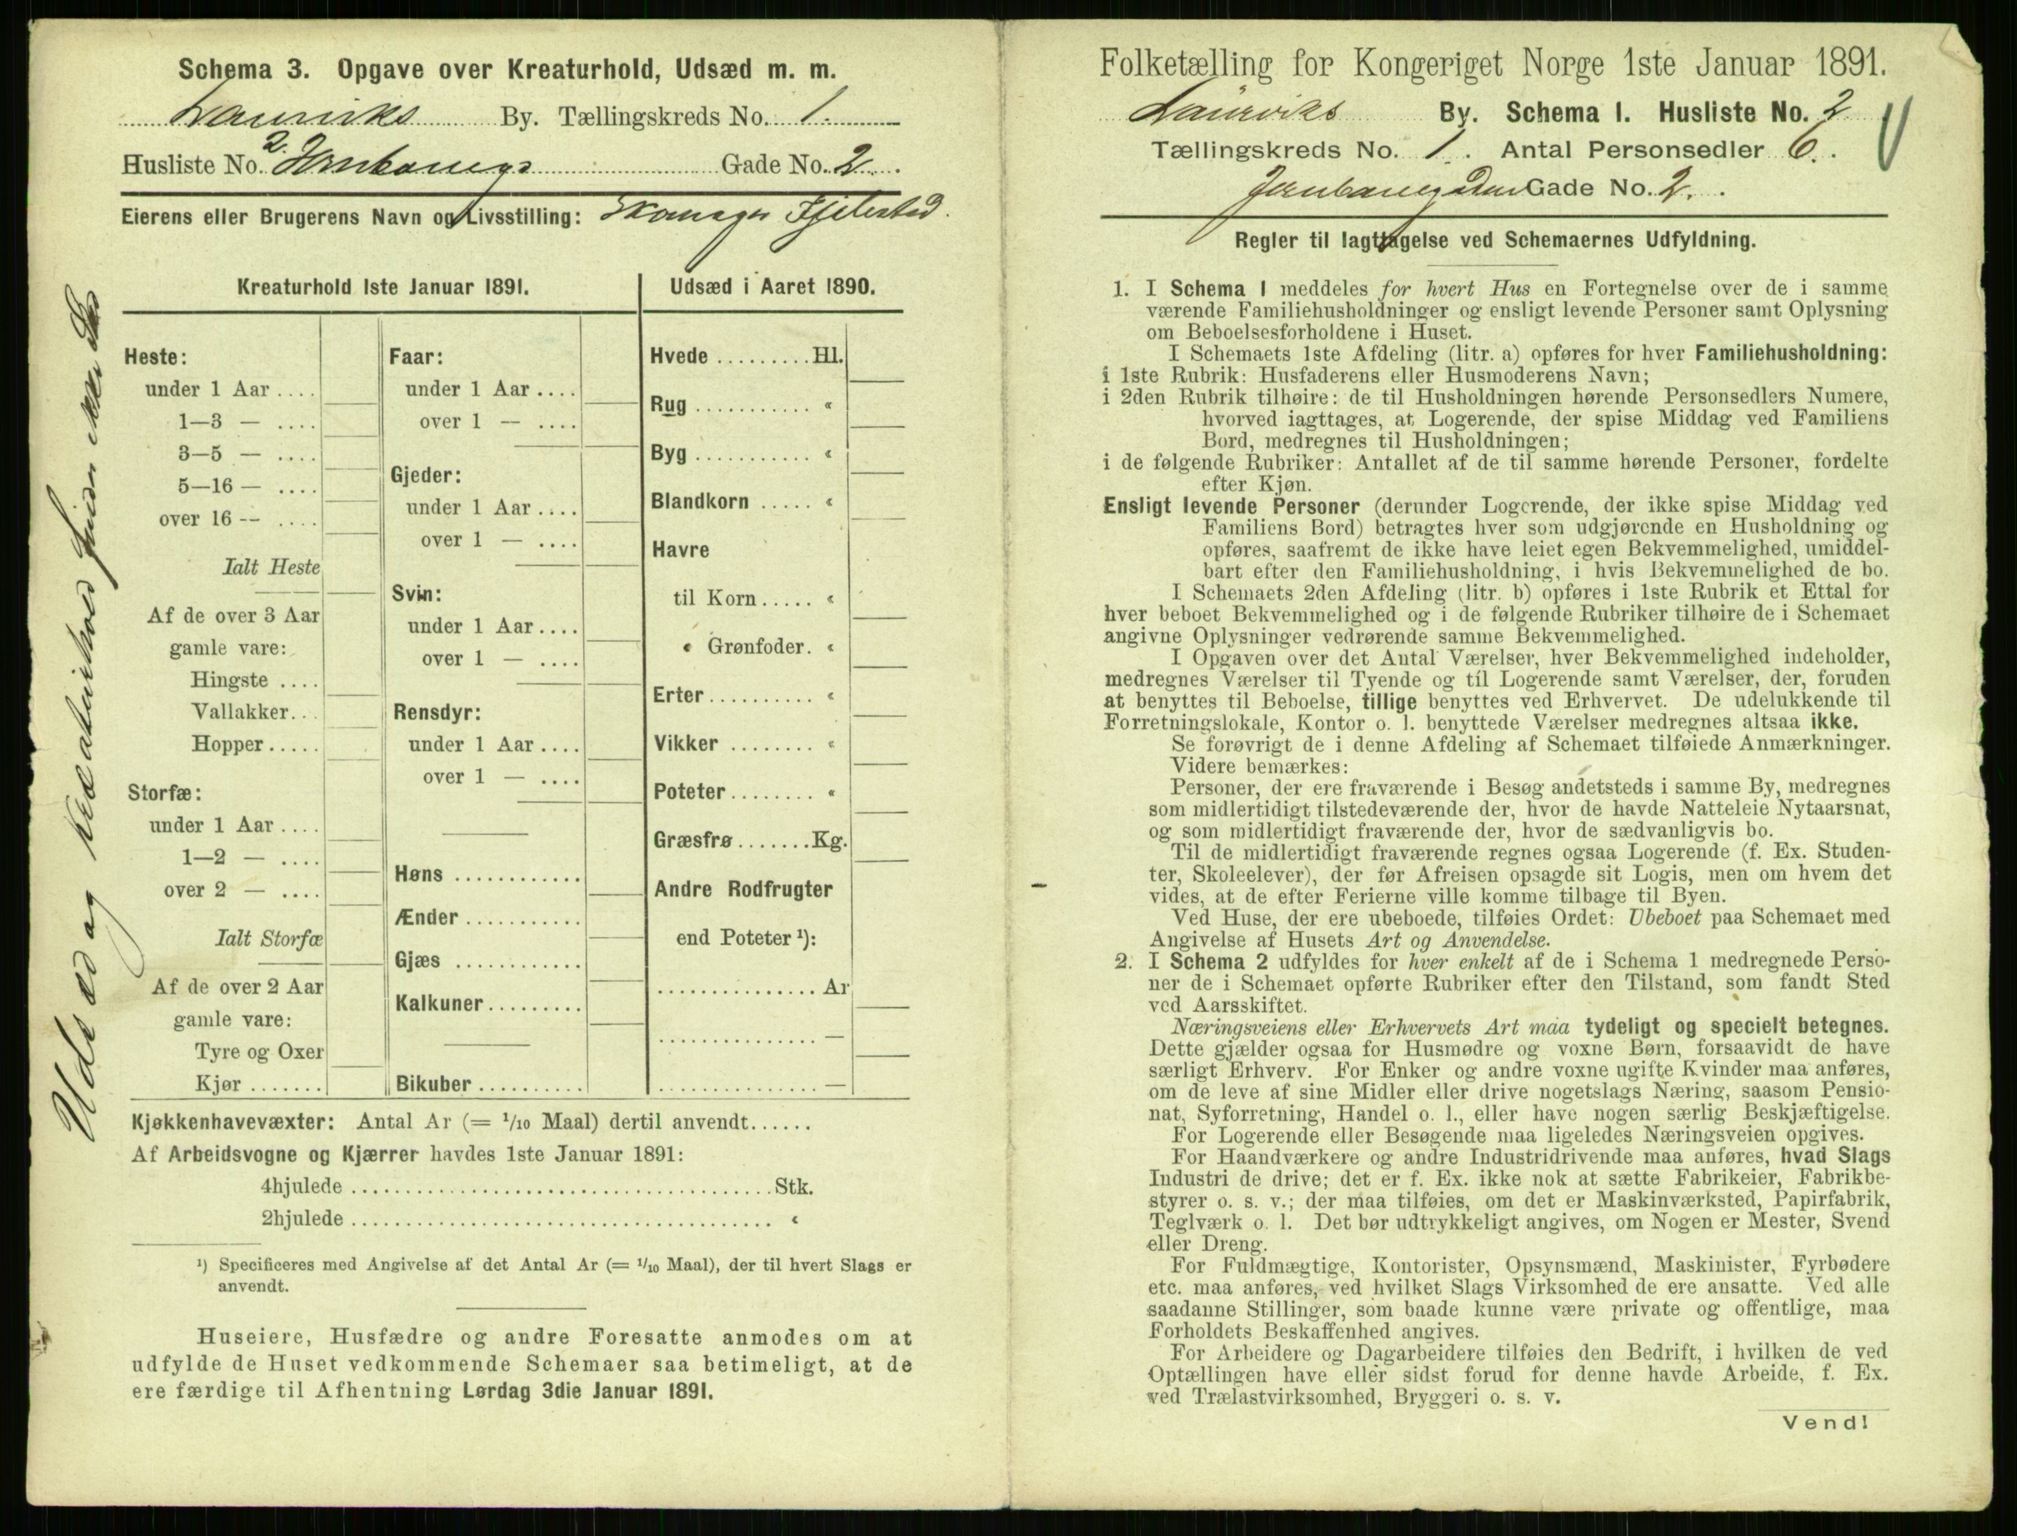 Schema 3. Opgave over Kreaturhold, Udsæd m. m.
Laurviks By. Tællingskreds No. 1.
Husliste No. 2. Jernbanegs Gade No. 2.
Eierens eller Brugerens Navn og Livsstilling: Skomager Fjelstad.
Udsæd og Kreaturhold finder ikke Sted
Kreaturhold 1ste Januar 1891.
Heste:
under 1 Aar ....
1—3 — ....
3—5 — ....
5—16 — ....
over 16 -- ....
Ialt Heste
Af de over 3 Aar
gamle vare:
Hingste ....
Vallakker...
Hopper.....
Storfæ:
under 1 Aar ....
1—2 — ....
over 2 — ....
Ialt Storfæ
Af de over 2 Aar
gamle vare:
Tyre og Oxer
Kjør .......
Faar:
under 1 Aar ....
over 1 — ....
Gjeder:
under 1 Aar ....
over 1 — ....
Svin:
under 1 Aar ....
over 1 — ....
Rensdyr:
under 1 Aar ....
over 1 — ....
Høns ............
Ænder ...........
Gjæs ............
Kalkuner.........
Bikuber ..........
Udsæd i Aaret 1890.
Hvede .........Hl.
Rug ........... «
Byg ........... «
Blandkorn ..... «
Havre
til Korn ..... «
« Grønfoder. «
Erter.......... «
Vikker ........ «
Poteter........ «
Græsfrø .......Kg.
Andre Rodfrugter
end Poteter ¹):
............... Ar
............... —
............... —
Kjøkkenhavevæxter: Antal Ar (= 1/10 Maal) dertil anvendt......
Af Arbeidsvogne og Kjærrer havdes 1ste Januar 1891:
4hjulede ....................................... Stk.
2hjulede ....................................... «
¹) Specificeres med Angivelse af det Antal Ar (= 1/10 Maal), der til hvert Slags er
anvendt.
Huseiere, Husfædre og andre Foresatte anmodes om at
udfylde de Huset vedkommende Schemaer saa betimeligt, at de
ere færdige til Afhentning Lørdag 3die Januar 1891.
Folketælling for Kongeriget Norge 1ste Januar 1891.
Laurviks By. Schema 1. Husliste No. 2
Tællingskreds No. 1. Antal Personsedler 6.
Gade No. 2.
Regler til Iagttagelse ved Schemaernes Udfyldning.
1. I Schema 1 meddeles for hvert Hus en Fortegnelse over de i samme
værende Familiehusholdninger og ensligt levende Personer samt Oplysning
om Beboelsesforholdene i Huset.
I Schemaets 1ste Afdeling (litr. a) opføres for hver Familiehusholdning:
i 1ste Rubrik: Husfaderens eller Husmoderens Navn;
i 2den Rubrik tilhøire: de til Husholdningen hørende Personsedlers Numere,
hvorved iagttages, at Logerende, der spise Middag ved Familiens
Bord, medregnes til Husholdningen;
i de følgende Rubriker: Antallet af de til samme hørende Personer, fordelte
efter Kjøn.
Ensligt levende Personer (derunder Logerende, der ikke spise Middag ved
Familiens Bord) betragtes hver som udgjørende en Husholdning og
opføres, saafremt de ikke have leiet egen Bekvemmelighed, umiddel-
bart efter den Familiehusholdning, i hvis Bekvemmelighed de bo.
I Schemaets 2den Afdeling (litr. b) opføres i 1ste Rubrik et Ettal for
hver beboet Bekvemmelighed og i de følgende Rubriker tilhøire de i Schemaet
angivne Oplysninger vedrørende samme Bekvemmelighed.
I Opgaven over det Antal Værelser, hver Bekvemmelighed indeholder,
medregnes Værelser til Tyende og til Logerende samt Værelser, der, foruden
at benyttes til Beboelse, tillige benyttes ved Erhvervet. De udelukkende til
Forretningslokale, Kontor o. l. benyttede Værelser medregnes altsaa ikke.
Se forøvrigt de i denne Afdeling af Schemaet tilføiede Anmærkninger.
Videre bemærkes:
Personer, der ere fraværende i Besøg andetsteds i samme By, medregnes
som midlertidigt tilstedeværende der, hvor de havde Natteleie Nytaarsnat,
og som midlertidigt fraværende der, hvor de sædvanligvis bo.
Til de midlertidigt fraværende regnes ogsaa Logerende (f. Ex. Studen-
ter, Skoleelever), der før Afreisen opsagde sit Logis, men om hvem det
vides, at de efter Ferierne ville komme tilbage til Byen.
Ved Huse, der ere ubeboede, tilføies Ordet: Ubeboet paa Schemaet med
Angivelse af Husets Art og Anvendelse.
2. I Schema 2 udfyldes for hver enkelt af de i Schema 1 medregnede Perso-
ner de i Schemaet opførte Rubriker efter den Tilstand, som fandt Sted
ved Aarsskiftet.
Næringsveiens eller Erhvervets Art maa tydeligt og specielt betegnes.
Dette gjælder ogsaa for Husmødre og voxne Børn, forsaavidt de have
særligt Erhverv. For Enker og andre voxne ugifte Kvinder maa anføres,
om de leve af sine Midler eller drive nogetslags Næring, saasom Pensio-
nat, Syforretning, Handel o. l., eller have nogen særlig Beskjæftigelse.
For Logerende eller Besøgende maa ligeledes Næringsveien opgives.
For Haandværkere og andre Industridrivende maa anføres, hvad Slags
Industri de drive; det er f. Ex. ikke nok at sætte Fabrikeier, Fabrikbe-
styrer o. s. v.; der maa tilføies, om det er Maskinværksted, Papirfabrik,
Teglværk o. l. Det bør udtrykkeligt angives, om Nogen er Mester, Svend
eller Dreng.
For Fuldmægtige, Kontorister, Opsynsmænd, Maskinister, Fyrbødere
etc. maa anføres, ved hvilket Slags Virksomhed de ere ansatte. Ved alle
saadanne Stillinger, som baade kunne være private og offentlige, maa
Forholdets Beskaffenhed angives.
For Arbeidere og Dagarbeidere tilføies den Bedrift, i hvilken de ved
Optællingen have eller sidst forud for denne havde Arbeide, f. Ex.
ved Trælastvirksomhed, Bryggeri o. s. v.
Vend!